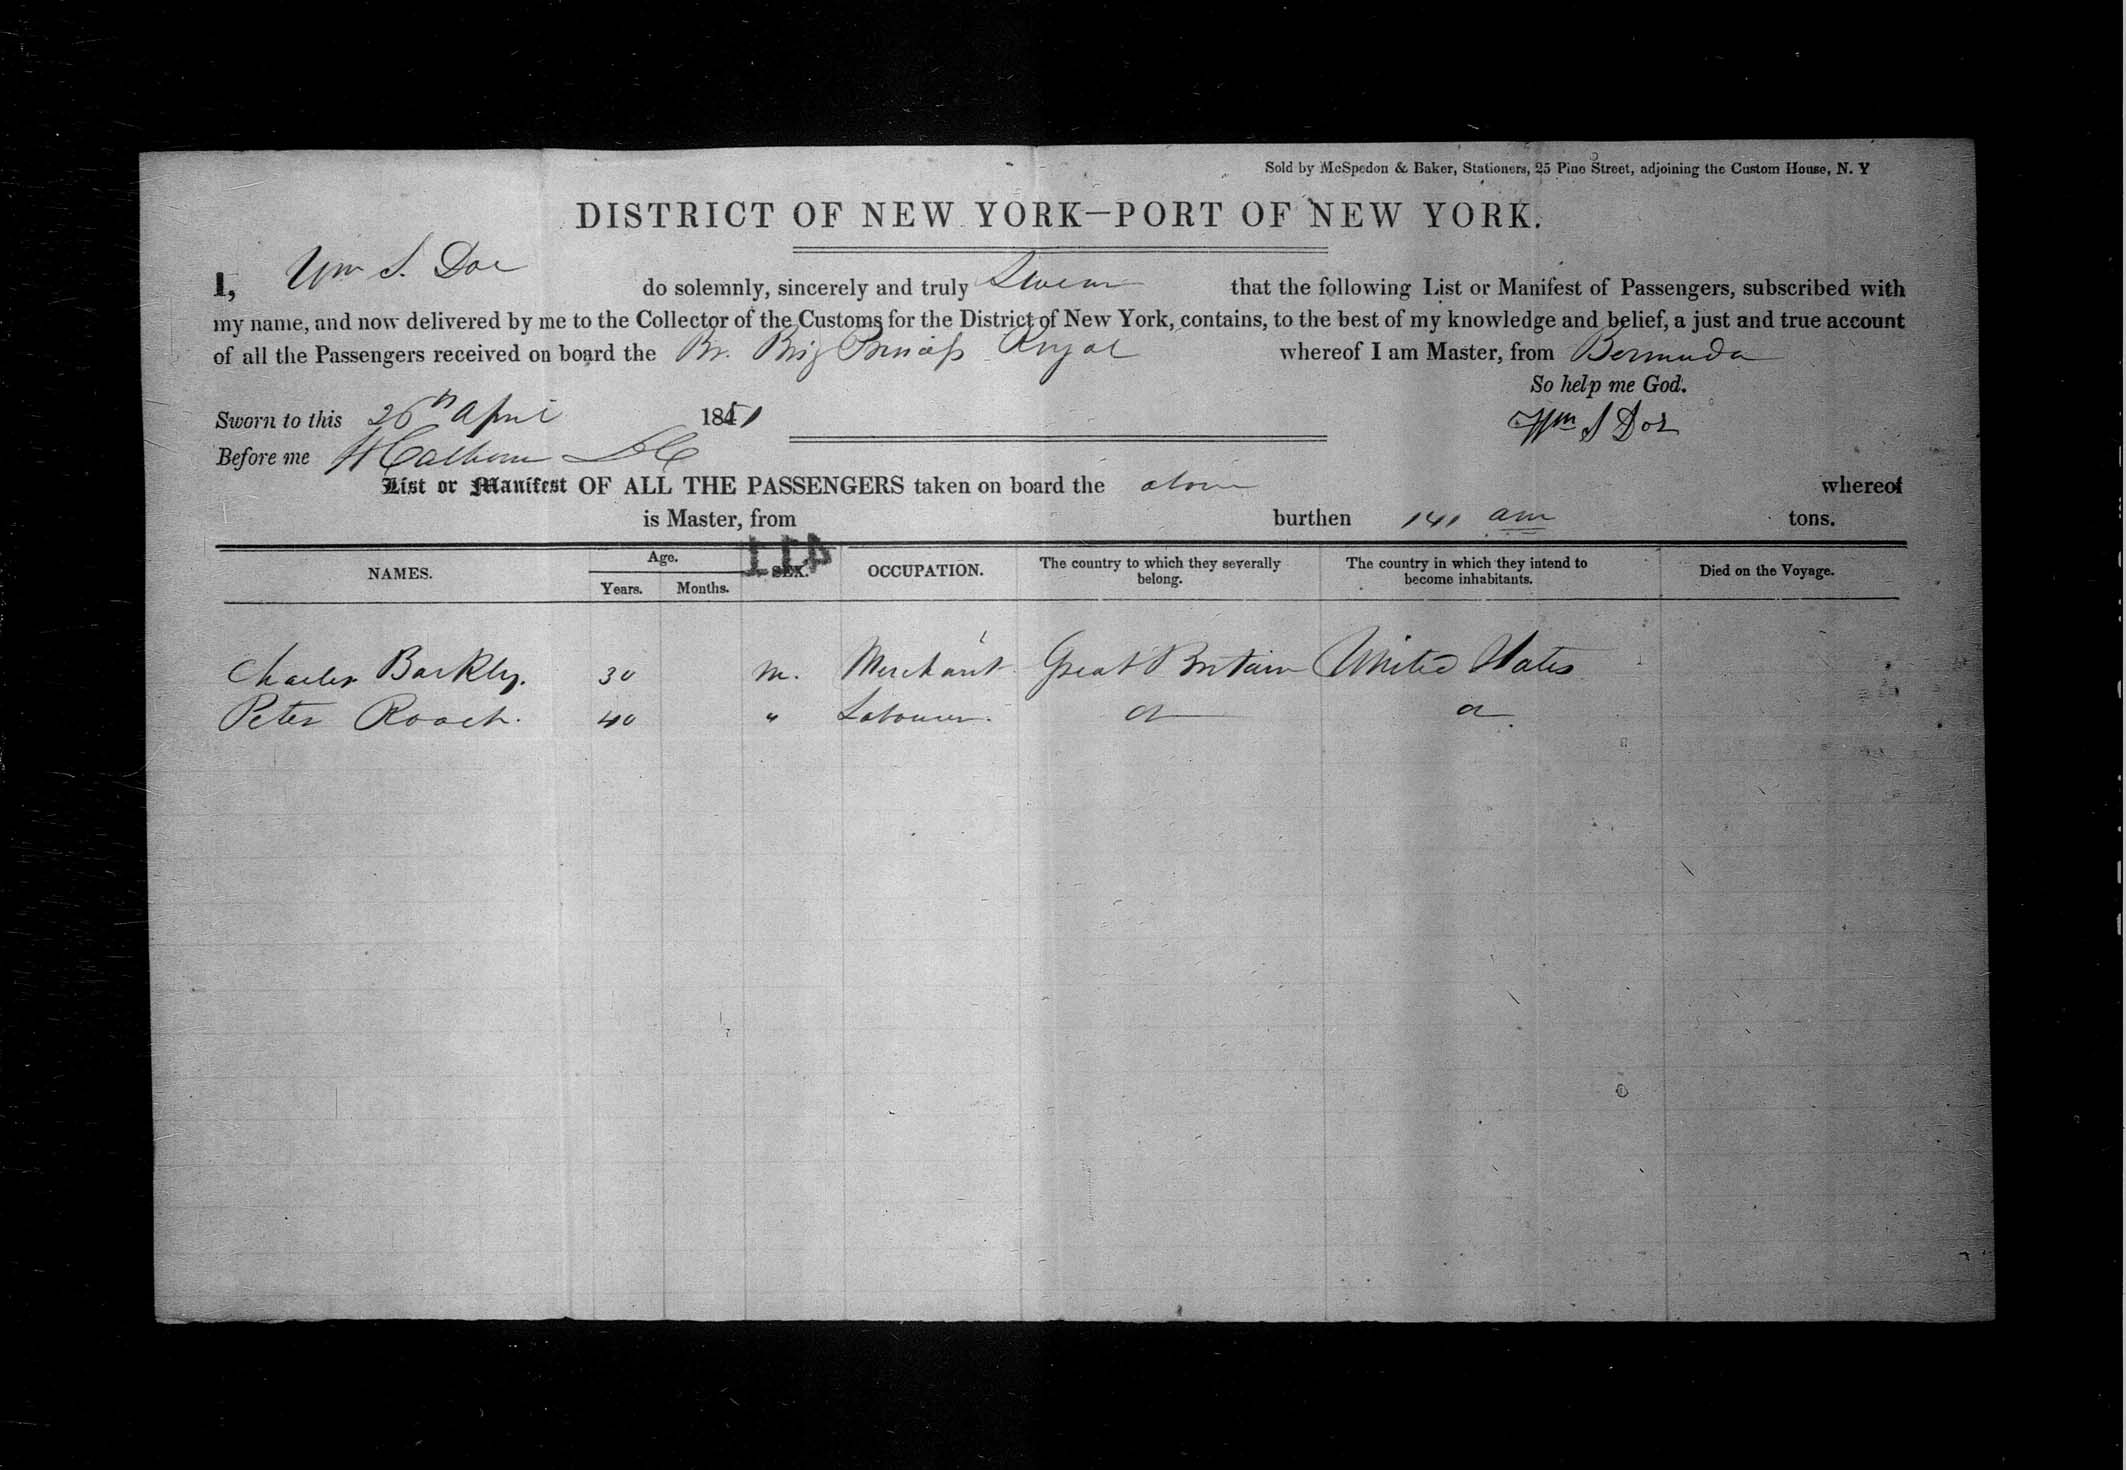 Sold by McSpedon & Baker, Stationers, 25 Pine Street, adjoining the Custom House, N. Y
DISTRICT OF NEW YORK—PORT OF NEW YORK.
I, Wm S. Doe do solemnly, sincerely and truly Swear that the following List or Manifest of Passengers, subscribed with
my name, and now delivered by me to the Collector of the Customs for the District of New York, contains, to the best of my knowledge and belief, a just and true account
of all the Passengers received on board the Br. Brig Princess Royal whereof I am Master, from Bermuda
So help me God.
Sworn to this 26th April 1851 Wm S Doe
Before me Calhoun
List or Manifest OF ALL THE PASSENGERS taken on board the above whereof
is Master, from burthen 141 tons.
411
NAMES. Age. SEX. OCCUPATION. The country to which they severally belong. The country in which they intend to become inhabitants. Died on the Voyage.
Years. Months.
Charles Barkly. 30 M. Merchant Great Britain United States
Peter Roach. 40 " Labourer.